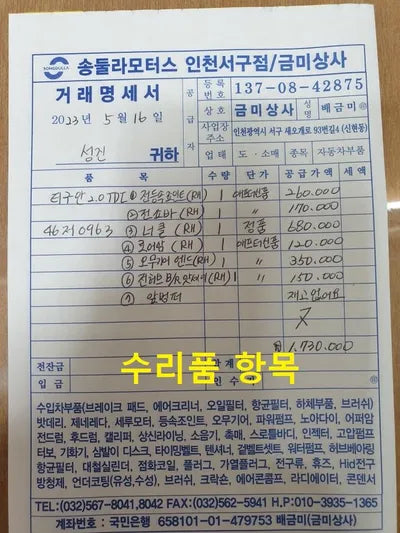 SONGDULLA
송둘라모터스 인천서구점/금미상사
거래명세서
2023년 5월 16일
성진 귀하
공급자
등록번호 137-08-42875
상호 금미상사 성명 배금미 ㊞
사업장주소 인천광역시 서구 새오개로 93번길4 (신현동)
업태 도·소매 종목 자동차부품
품 목 수량 단가 공급가액 세액
티구안 2.0TDI ① 전등속조인트(RH) 1 애프터신품 260.000
② 전쇼바(RH) 1 〃 170.000
46저0963 ③ 너클(RH) 1 정품 680.000
④ 로어암(RH) 1 애프터신품 120.000
⑤ 오무기어엔드(RH) 1 〃 350.000
⑥ 전허브 B/R (RH) 1 〃 150.000
⑦ 재고없어요
₩ 1.730.000
전잔금
입금
수리품 항목
수입차부품(브레이크 패드, 에어크리너, 오일필터, 항균필터, 하체부품, 브러쉬)
밧데리, 제네레다, 세루모터, 등속조인트, 오무기어, 파워펌프, 노아다이, 어퍼암
전드럼, 후드럼, 캘리퍼, 상신라이닝, 소음기, 촉매, 스로틀바디, 인젝터, 고압펌프
터보, 기화기, 삼발이 디스크, 타이밍벨트, 텐셔너, 겉벨트셋트, 워터펌프, 허브베어링
항균필터, 대철실린더, 점화코일, 플러그, 가열플러그, 전구류, 휴즈, Hid전구
방청제, 언더코팅(유성,수성), 브러쉬, 크락숀, 에어콘콤프, 라디에이터, 콘덴서
TEL:(032)567-8041,8042 FAX:(032)562-5941 H.P:010-3935-1365
계좌번호 : 국민은행 658101-01-479753 배금미(금미상사)